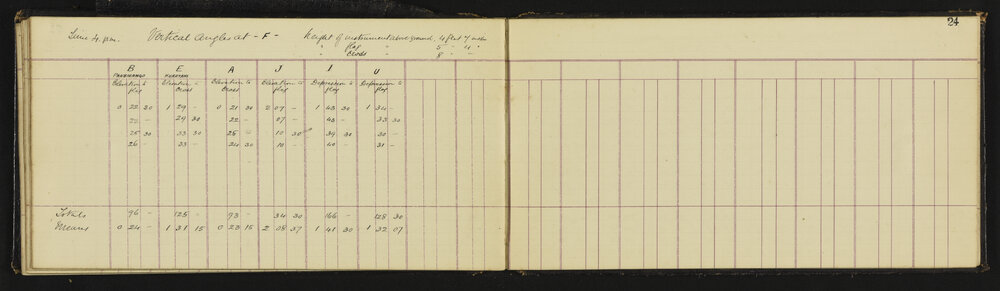 24
June 4 p.m. Vertical Angles at - F - Height of instrument above ground, 4 feet 7 inches
" flag " 5 " 11 "
" Cross " 8 " - "
B E A J I U
Elevation to Elevation to Elevation to Elevation to Depression to Depression to
flag Cross Cross flag flag flag
0 22 30 1 29 - 0 21 30 2 07 - 1 43 30 1 34 -
22 - 29 30 22 - 07 - 43 - 33 30
25 30 33 30 25 - 10 30 39 30 30 -
26 - 33 - 24 30 10 - 40 - 31 -
Totals 96 - 125 - 93 - 34 30 166 - 128 30
Means 0 24 - 1 31 15 0 23 15 2 08 37 1 41 30 1 32 07